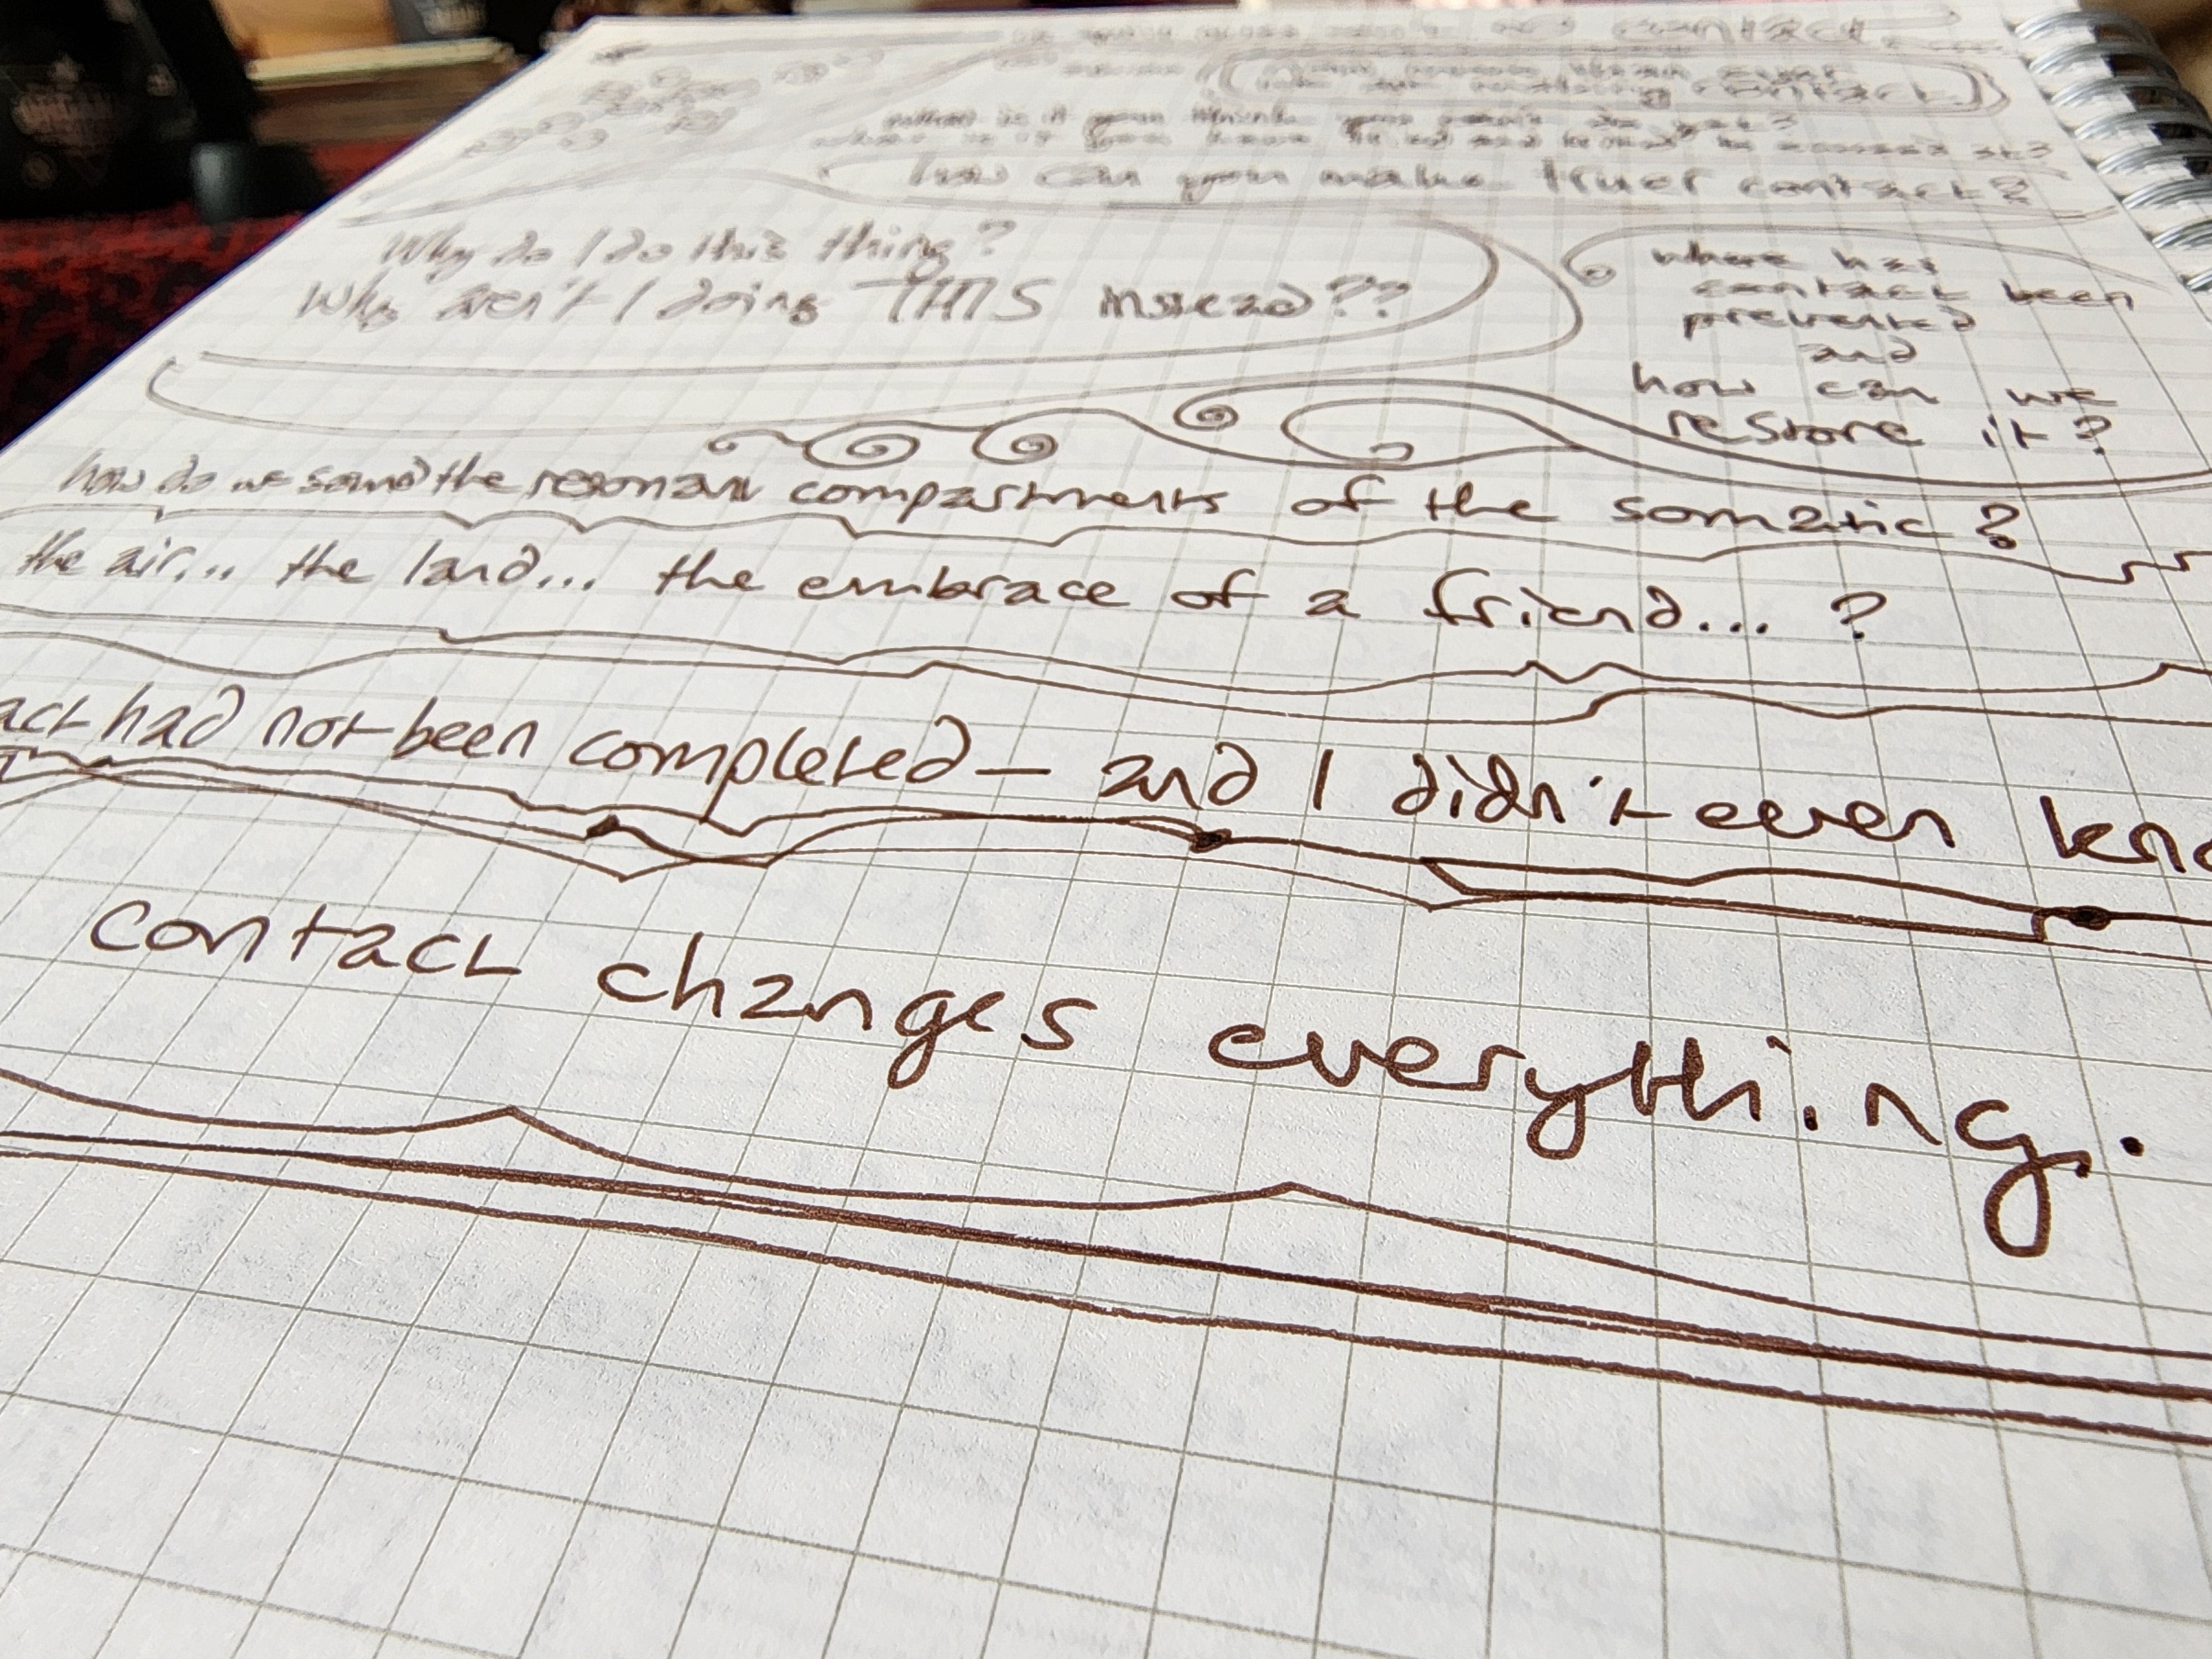 contact
making contact
what is it you think
how can you make truer contact?
Why do I do this thing?
Why aren't I doing THIS instead??
where has
contact been
prevented
and
how can we
restore it?
how do we sound the resonant compartments of the somatic?
the air... the land... the embrace of a friend... ?
act had not been completed — and I didn't even kno
contact changes everything.